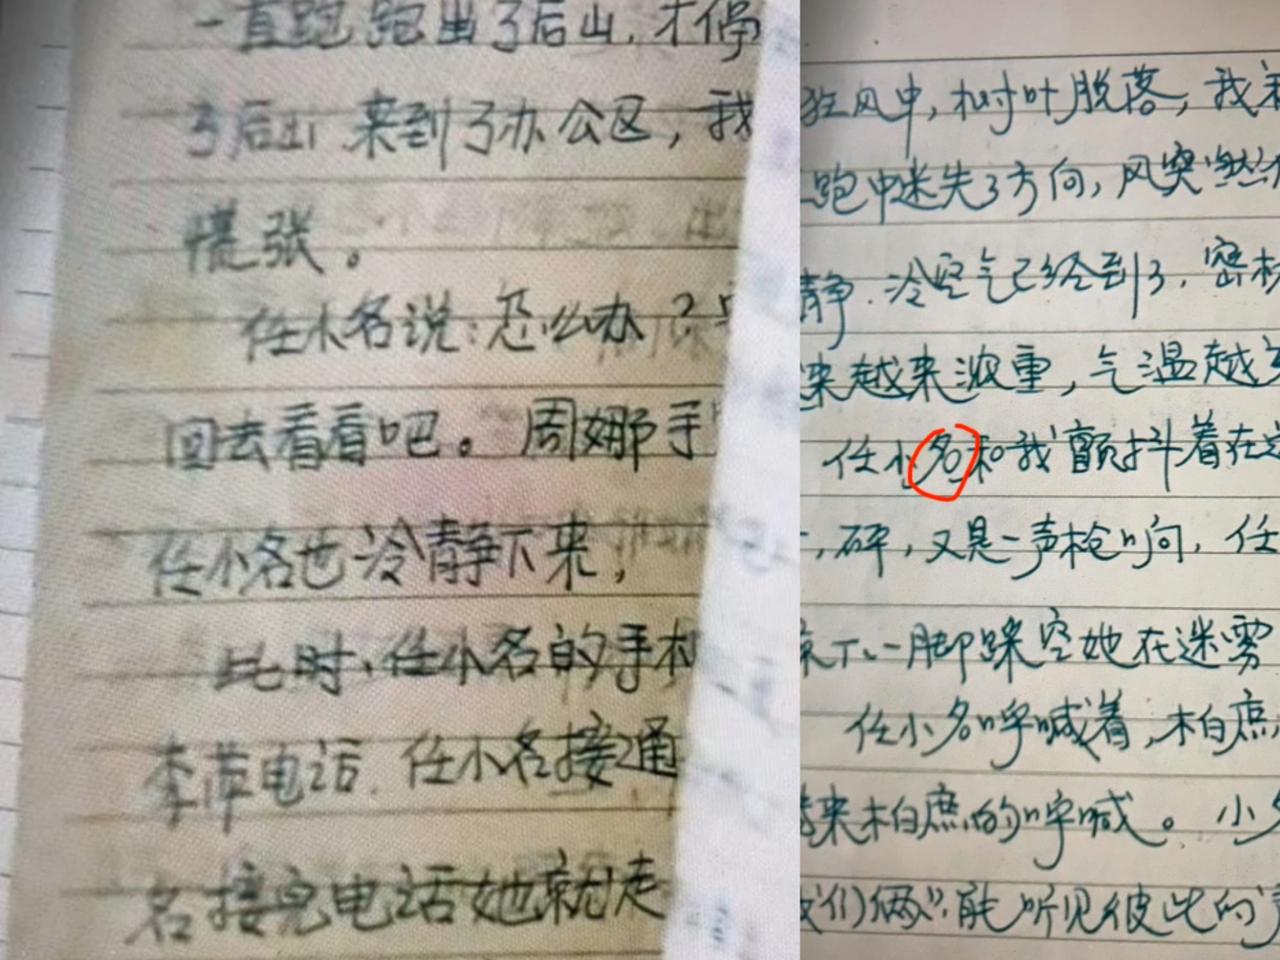 一直跑跑出了后山.才停
了后山来到了办公区，我
慌张。
任小名说：怎么办？
回去看看吧。周娜手
任小名也冷静下来，
此时，任小名的手机
李萍电话.任小名接通
名接完电话她就走
狂风中，树叶脱落，我和
跑中迷失了方向，风突然
静.冷空气已经到了.密林
来越来浓重，气温越
任小名和我颤抖着在
，砰，又是一声枪响，任
一脚踩空她在迷雾
任小名呼喊着，柏庶，
来柏庶的呼喊。小
们俩"能听见彼此的声